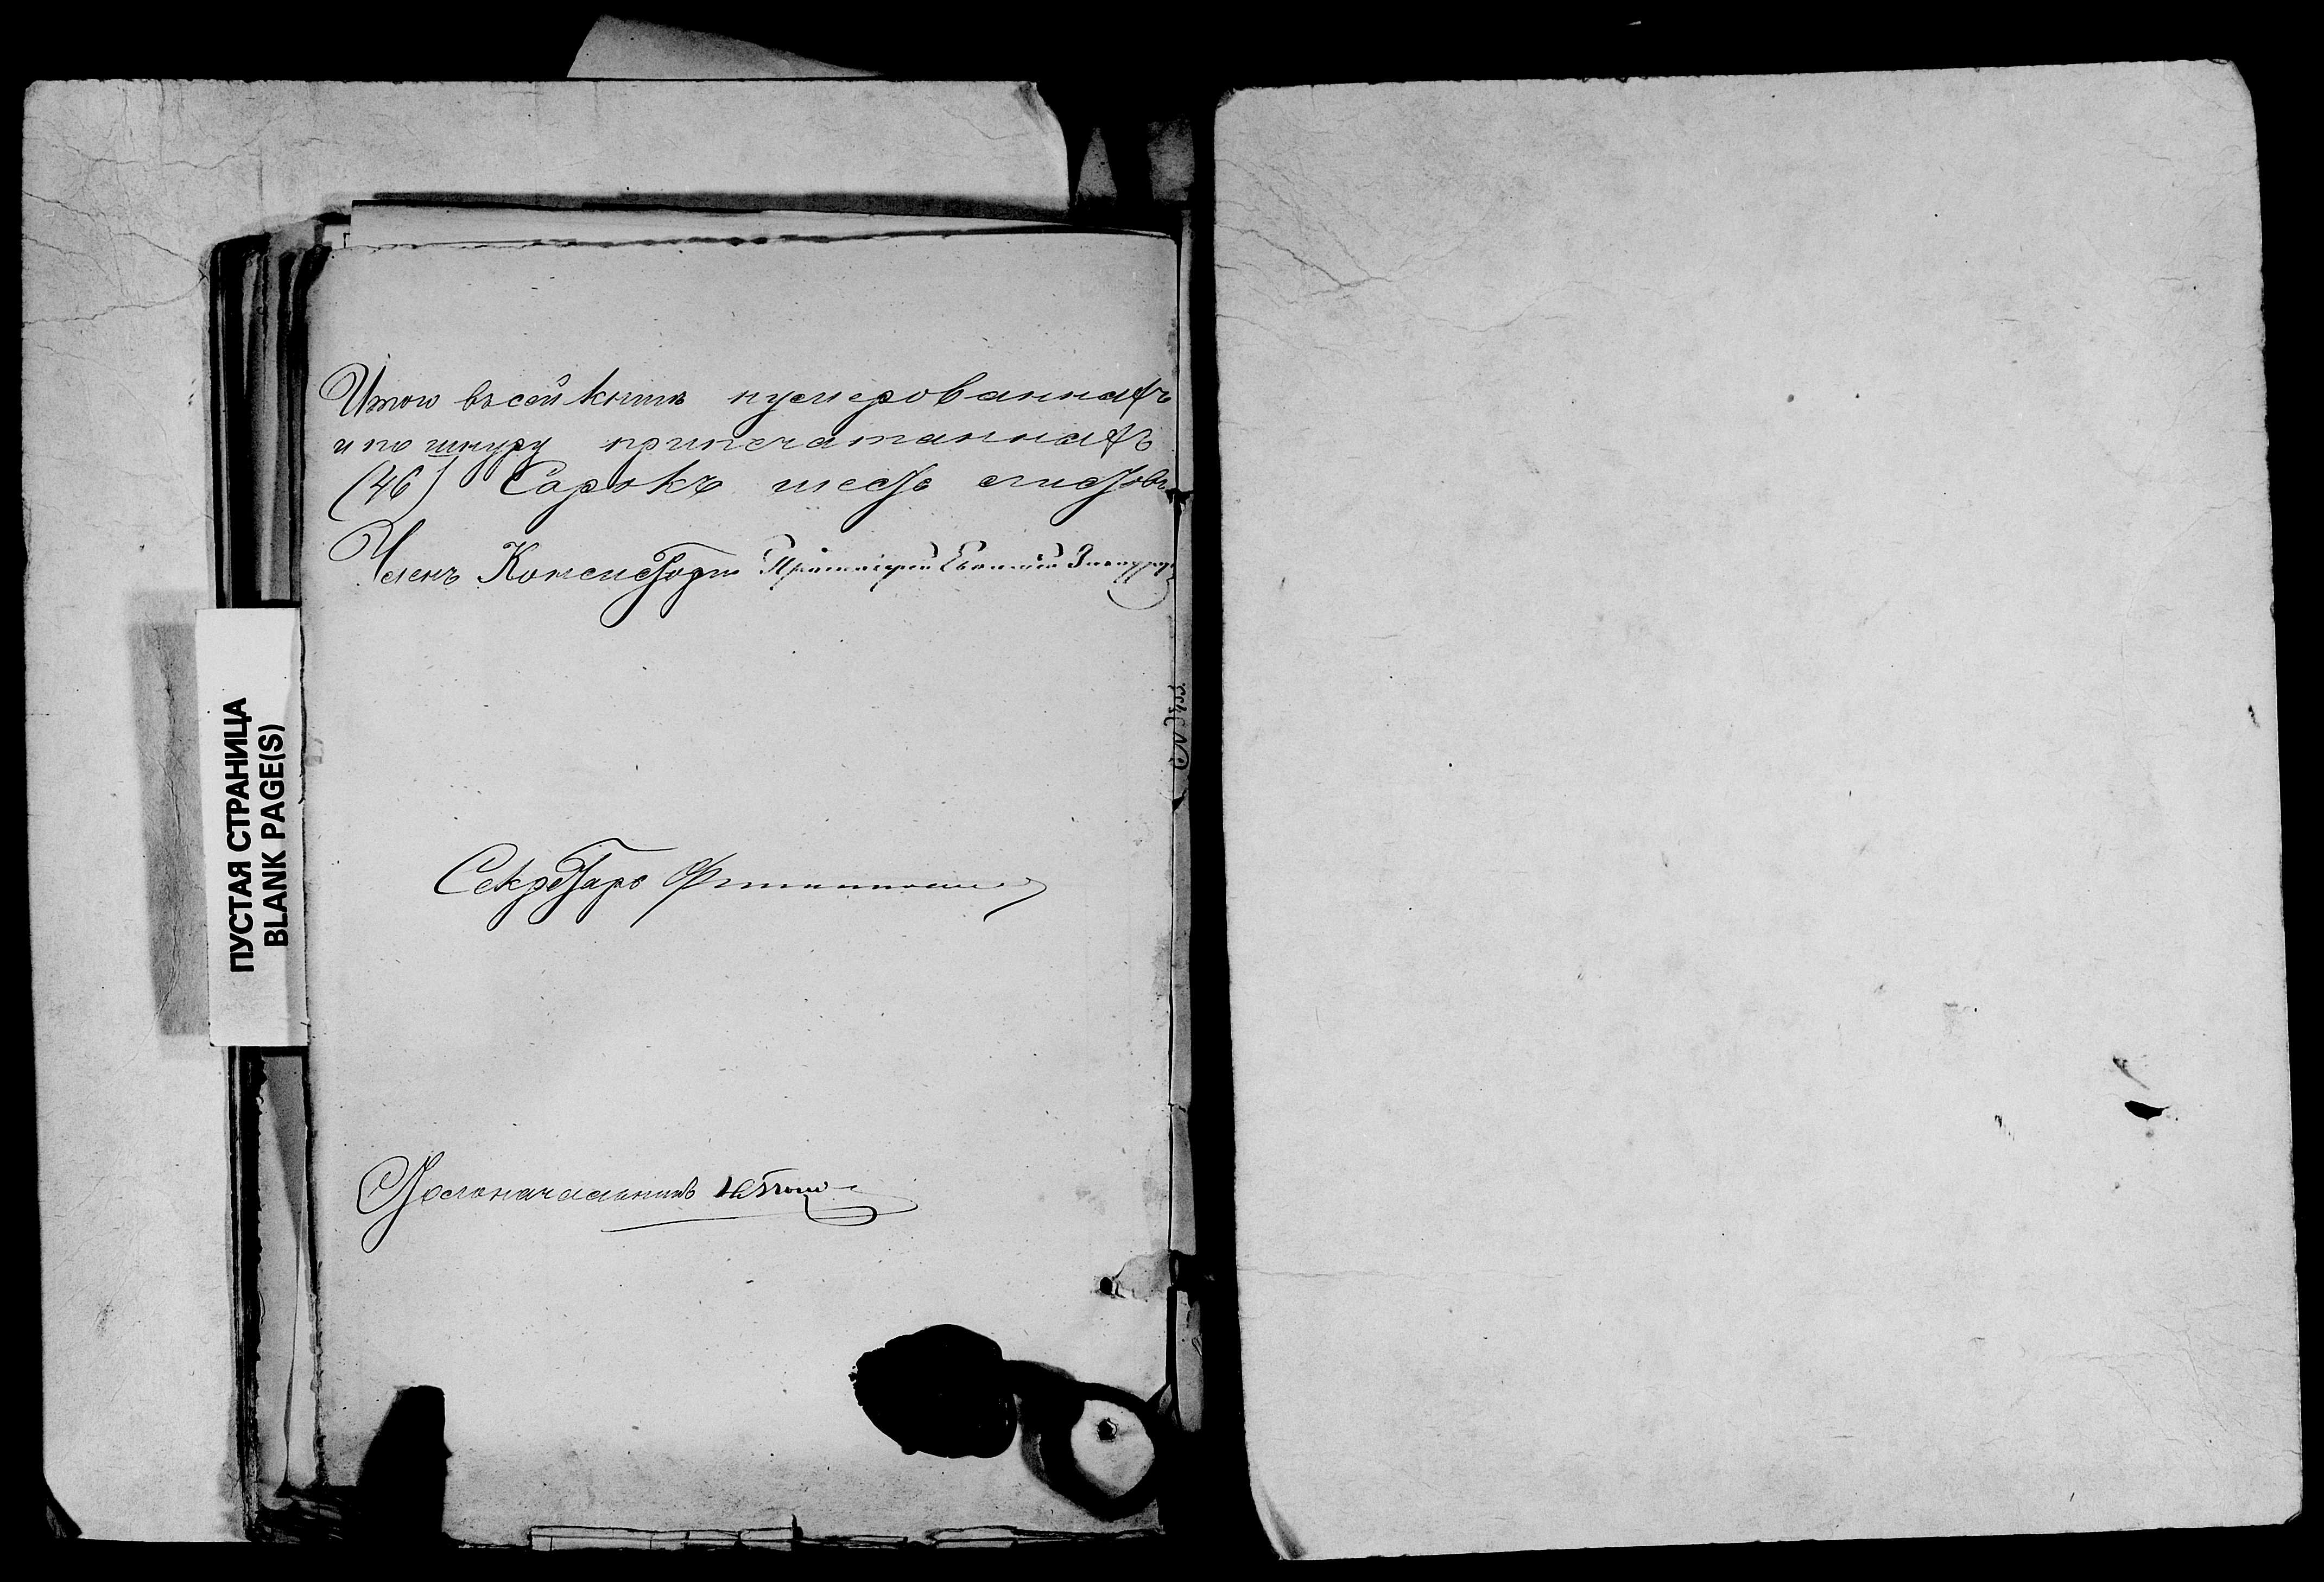 Итого въ сей книгѣ нумерованныхъ
и по шнуру припечатанныхъ
(46) Сорокъ шесть листовъ
Членъ Консисторіи Протоіерей Евѳимій
Секретарь
Столоначальникъ
ПУСТАЯ СТРАНИЦА
BLANK PAGE(S)